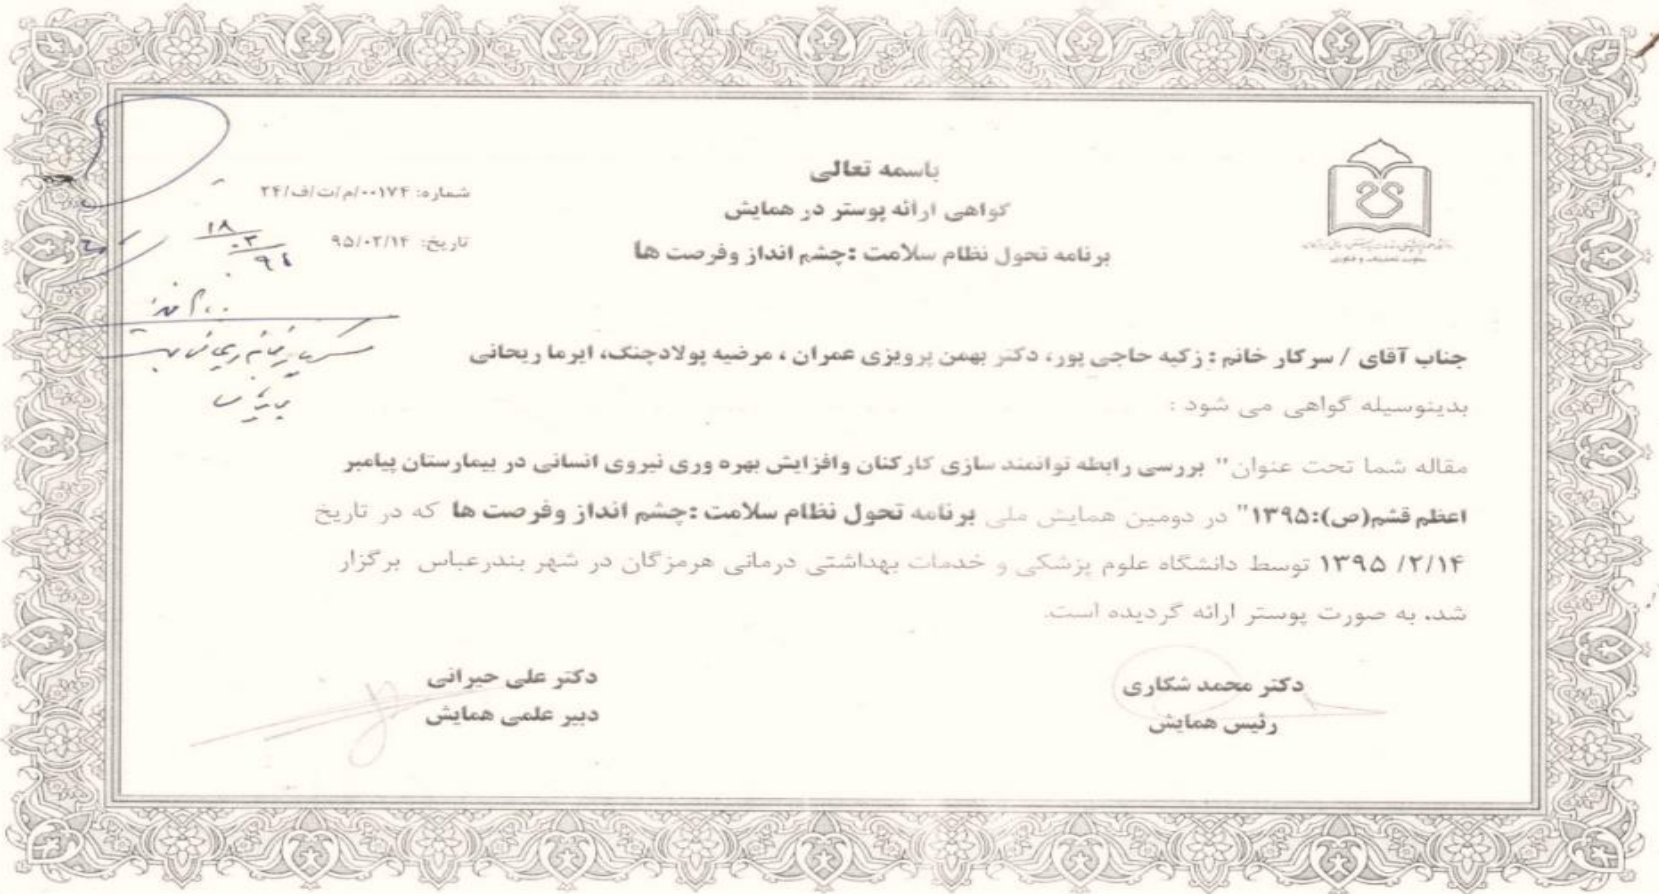 باسمه تعالی
گواهی ارائه پوستر در همایش
برنامه تحول نظام سلامت :چشم انداز وفرصت ها
شماره: ۰۰۱۷۴/م/ت/ف/۲۴
تاریخ: ۹۵/۰۲/۱۴
معاونت تحقیقات و فناوری
۱۸
جناب آقای / سرکار خانم : زکیه حاجی پور، دکتر بهمن پرویزی عمران ، مرضیه پولادچنگ، ایرما ریحانی
بدینوسیله گواهی می شود :
مقاله شما تحت عنوان" بررسی رابطه توانمند سازی کارکنان وافزایش بهره وری نیروی انسانی در بیمارستان پیامبر
اعظم قشم(ص):۱۳۹۵" در دومین همایش ملی برنامه تحول نظام سلامت :چشم انداز وفرصت ها که در تاریخ
۱۳۹۵ /۲/۱۴ توسط دانشگاه علوم پزشکی و خدمات بهداشتی درمانی هرمزگان در شهر بندرعباس برگزار
شد، به صورت پوستر ارائه گردیده است.
دکتر محمد شکاری
رئیس همایش
دکتر علی حیرانی
دبیر علمی همایش